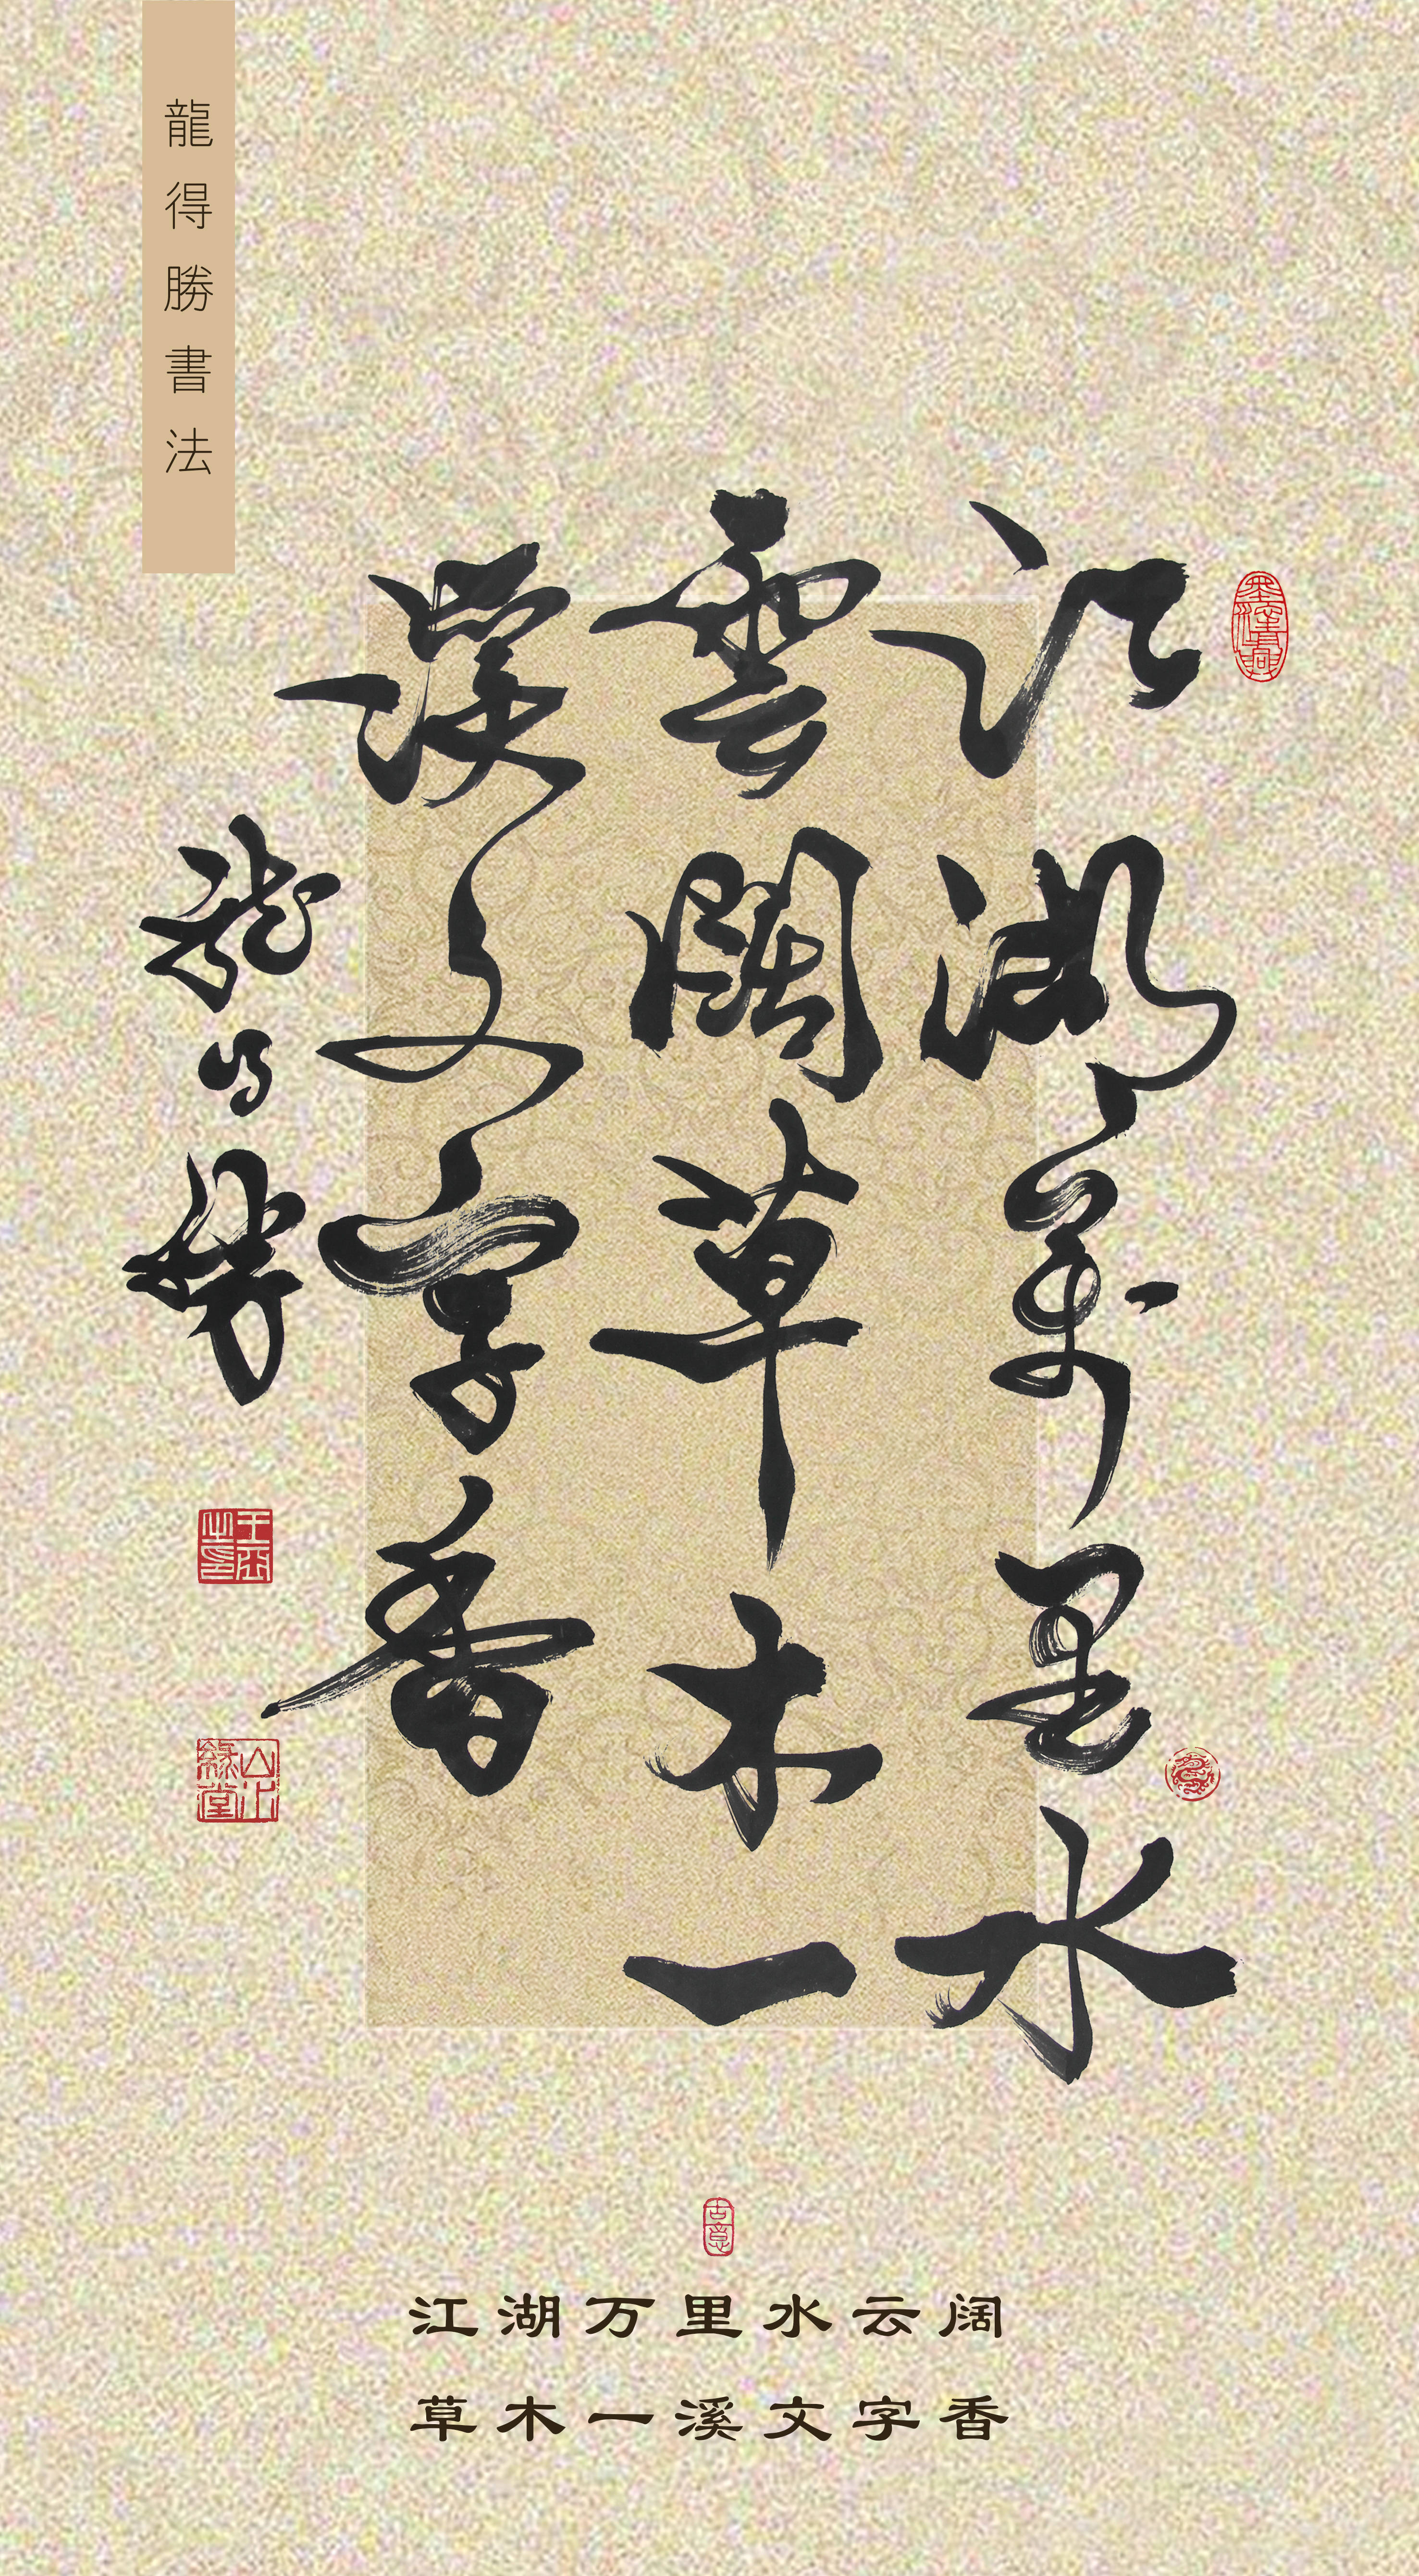 龍得勝書法
江湖萬里水
雲闊草木一
溪文字香
龍得勝
山水
緣堂
古意
江湖万里水云阔
草木一溪文字香